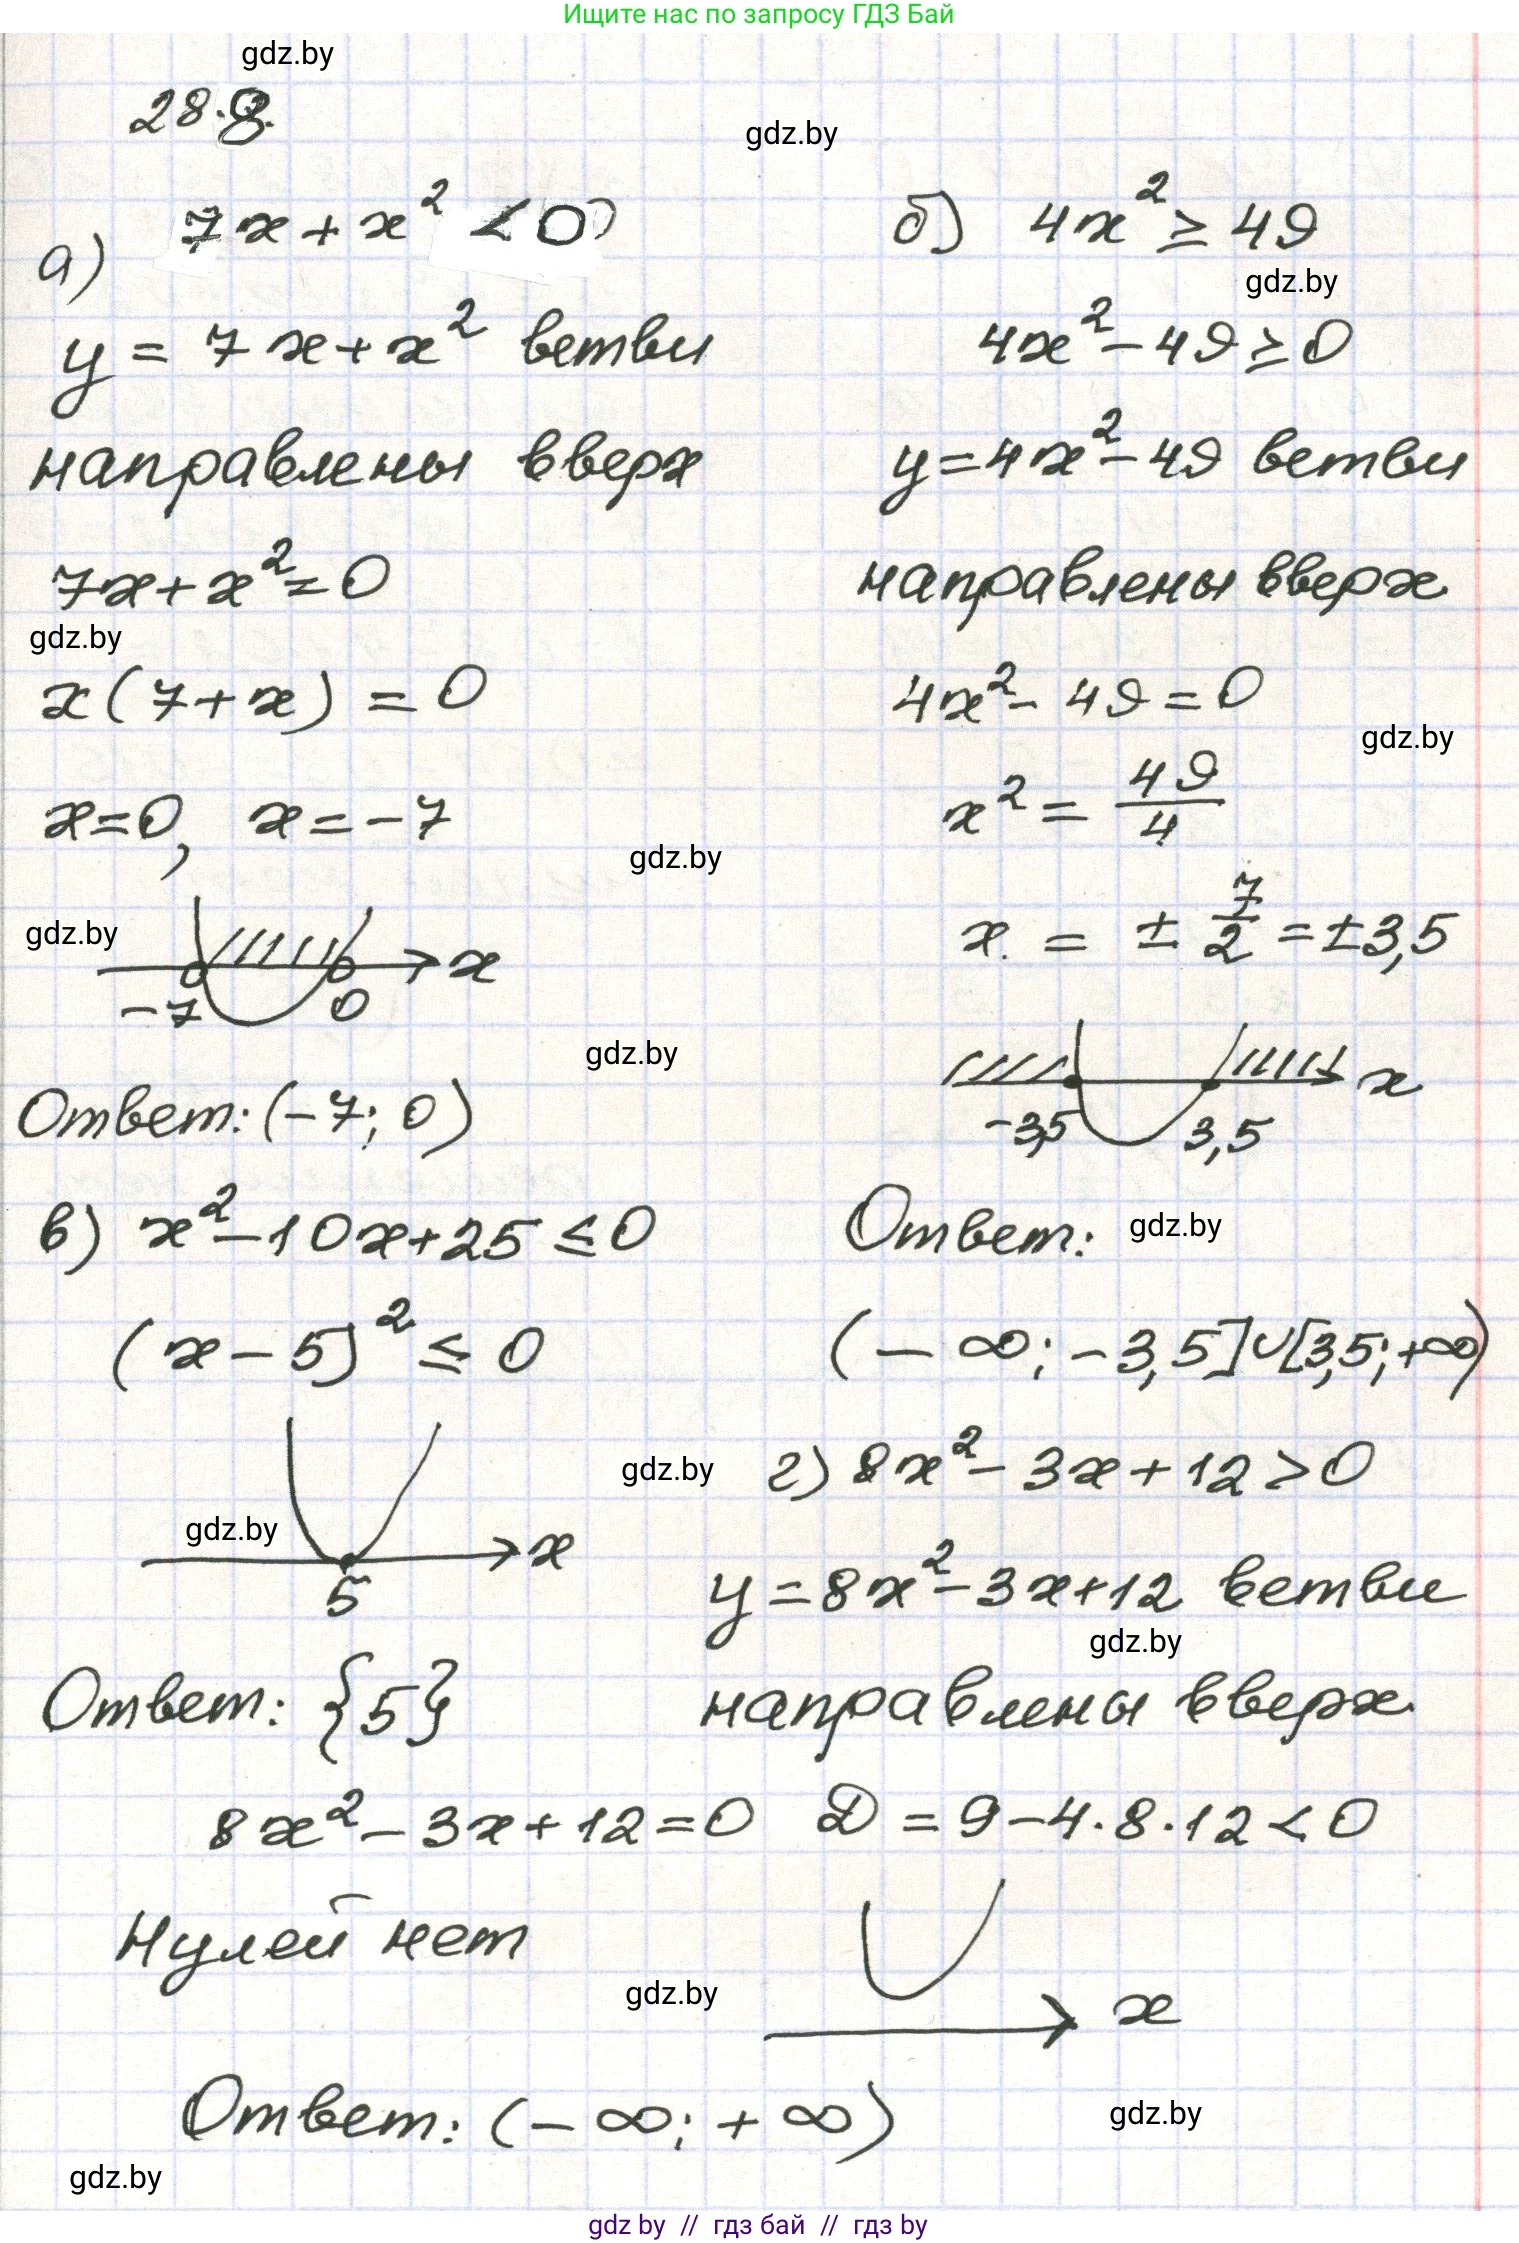 Ищите нас по запросу ГДЗ Бай
gdz.by
28.8.
gdz.by
а) 7x + x² < 0
y = 7x + x² ветви
направлены вверх
7x + x² = 0
gdz.by
x(7 + x) = 0
x = 0, x = -7
gdz.by
gdz.by
x
-7 0
gdz.by
Ответ: (-7; 0)
б) 4x² ≥ 49
gdz.by
4x² - 49 ≥ 0
y = 4x² - 49 ветви
направлены вверх
4x² - 49 = 0
gdz.by
x² = 49/4
x = ± 7/2 = ± 3,5
x
-3,5 3,5
Ответ: gdz.by
(-∞; -3,5] ∪ [3,5; +∞)
в) x² - 10x + 25 ≤ 0
(x - 5)² ≤ 0
gdz.by
gdz.by
x
5
Ответ: {5}
г) 8x² - 3x + 12 > 0
y = 8x² - 3x + 12 ветви
gdz.by
направлены вверх
8x² - 3x + 12 = 0 D = 9 - 4·8·12 < 0
Нулей нет
gdz.by
x
Ответ: (-∞; +∞)
gdz.by
gdz.by
gdz by // гдз бай // гдз by